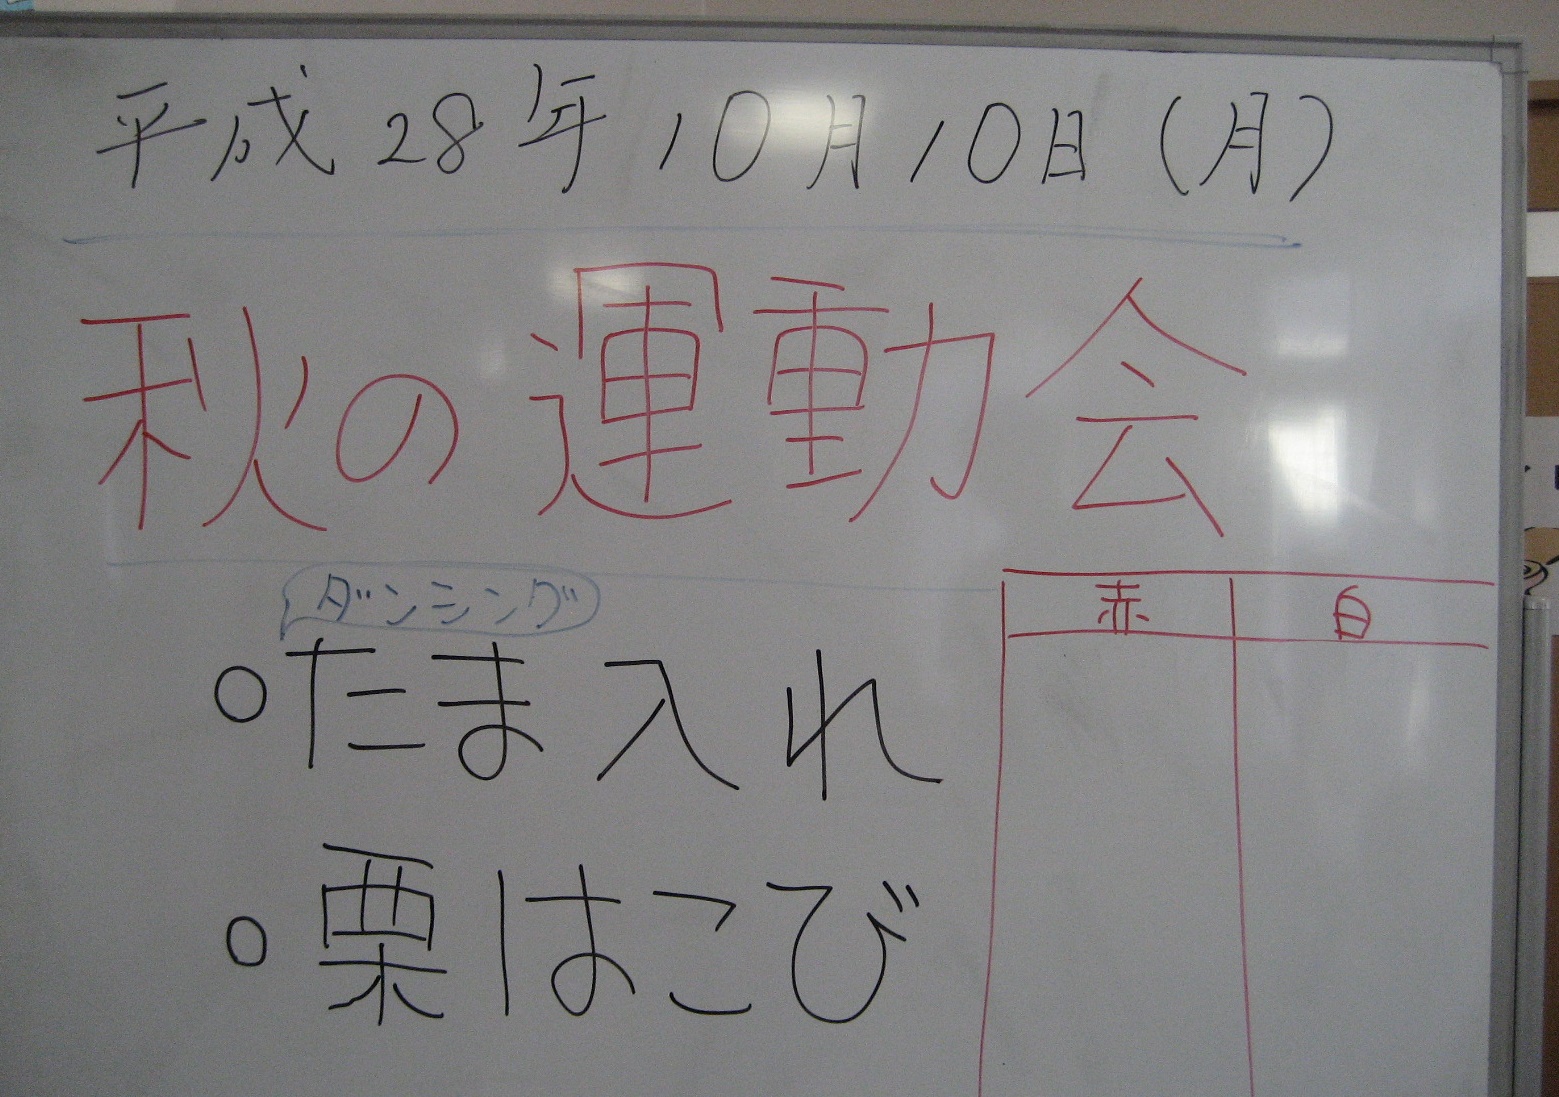 平成28年10月10日(月)
秋の運動会
ダンシング
○たま入れ
○栗はこび
赤 白